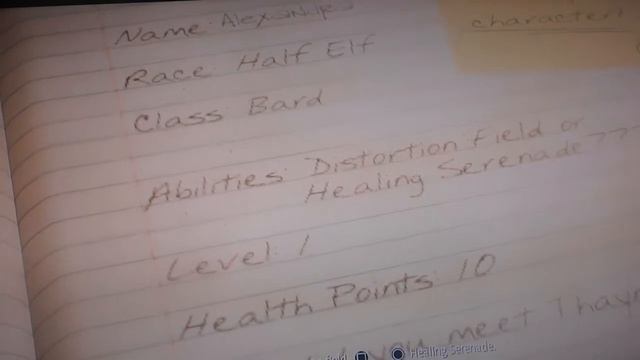 characters
Name:
Race: Half Elf
Class: Bard
Abilities: Distortion Field or
Healing Serenade???
Level: 1
Health Points: 10
you meet Thay
Healing Serenade.